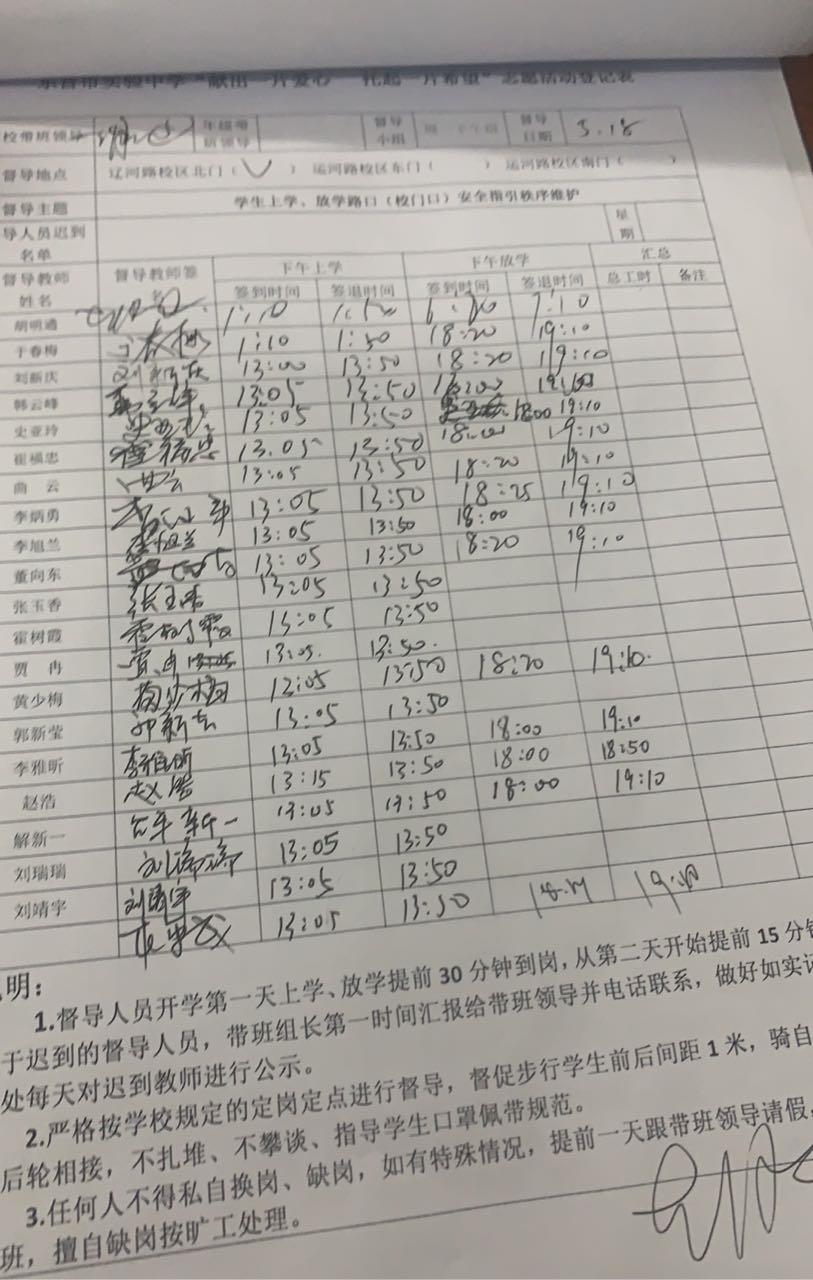 东营市实验中学“献出一片爱心 托起一片希望”志愿活动登记表
校带班领导 年级带班领导 督导小组 周一下午组 督导日期 3.18
督导地点 辽河路校区北门（√） 运河路校区东门（ ） 运河路校区南门（ ）
督导主题 学生上学、放学路口（校门口）安全指引秩序维护
导人员迟到名单 星期
督导教师姓名 督导教师签名 下午上学 下午放学 汇总
签到时间 签退时间 签到时间 签退时间 总工时 备注
胡明通 1:10
于春梅 于春梅 1:10 1:50 18:20 19:10
刘新庆 刘新庆 13:00 13:50 18:20 19:10
韩云峰 韩云峰 13:05 13:50 18:00 19:10
史亚玲 史亚玲 13:05 13:50 18:00 19:10
崔福忠 崔福忠 13:05 13:50 18:00 19:10
曲 云 曲云 13:05 13:50 18:20 19:10
李炳勇 13:05 13:50 18:25 19:10
李旭兰 李旭兰 13:05 13:50 18:00 19:10
董向东 13:05 13:50 18:20 19:10
张玉香 张玉香 13:05 13:50
霍树霞 霍树霞 13:05 13:50
贾 冉 贾冉 13:05 13:50
黄少梅 黄少梅 13:05 13:50 18:20 19:10
郭新莹 13:05 13:50
李雅昕 李雅昕 13:05 13:50 18:00 19:10
赵浩 赵浩 13:15 13:50 18:00 18:50
解新一 解新一 13:05 13:50 18:00 19:10
刘瑞瑞 刘瑞瑞 13:05 13:50
刘靖宇 刘靖宇 13:05 13:50
13:05 13:50
明：
1.督导人员开学第一天上学、放学提前 30 分钟到岗，从第二天开始提前 15 分钟
于迟到的督导人员，带班组长第一时间汇报给带班领导并电话联系，做好如实记
处每天对迟到教师进行公示。
2.严格按学校规定的定岗定点进行督导，督促步行学生前后间距 1 米，骑自
后轮相接，不扎堆、不攀谈、指导学生口罩佩带规范。
3.任何人不得私自换岗、缺岗，如有特殊情况，提前一天跟带班领导请假，
班，擅自缺岗按旷工处理。